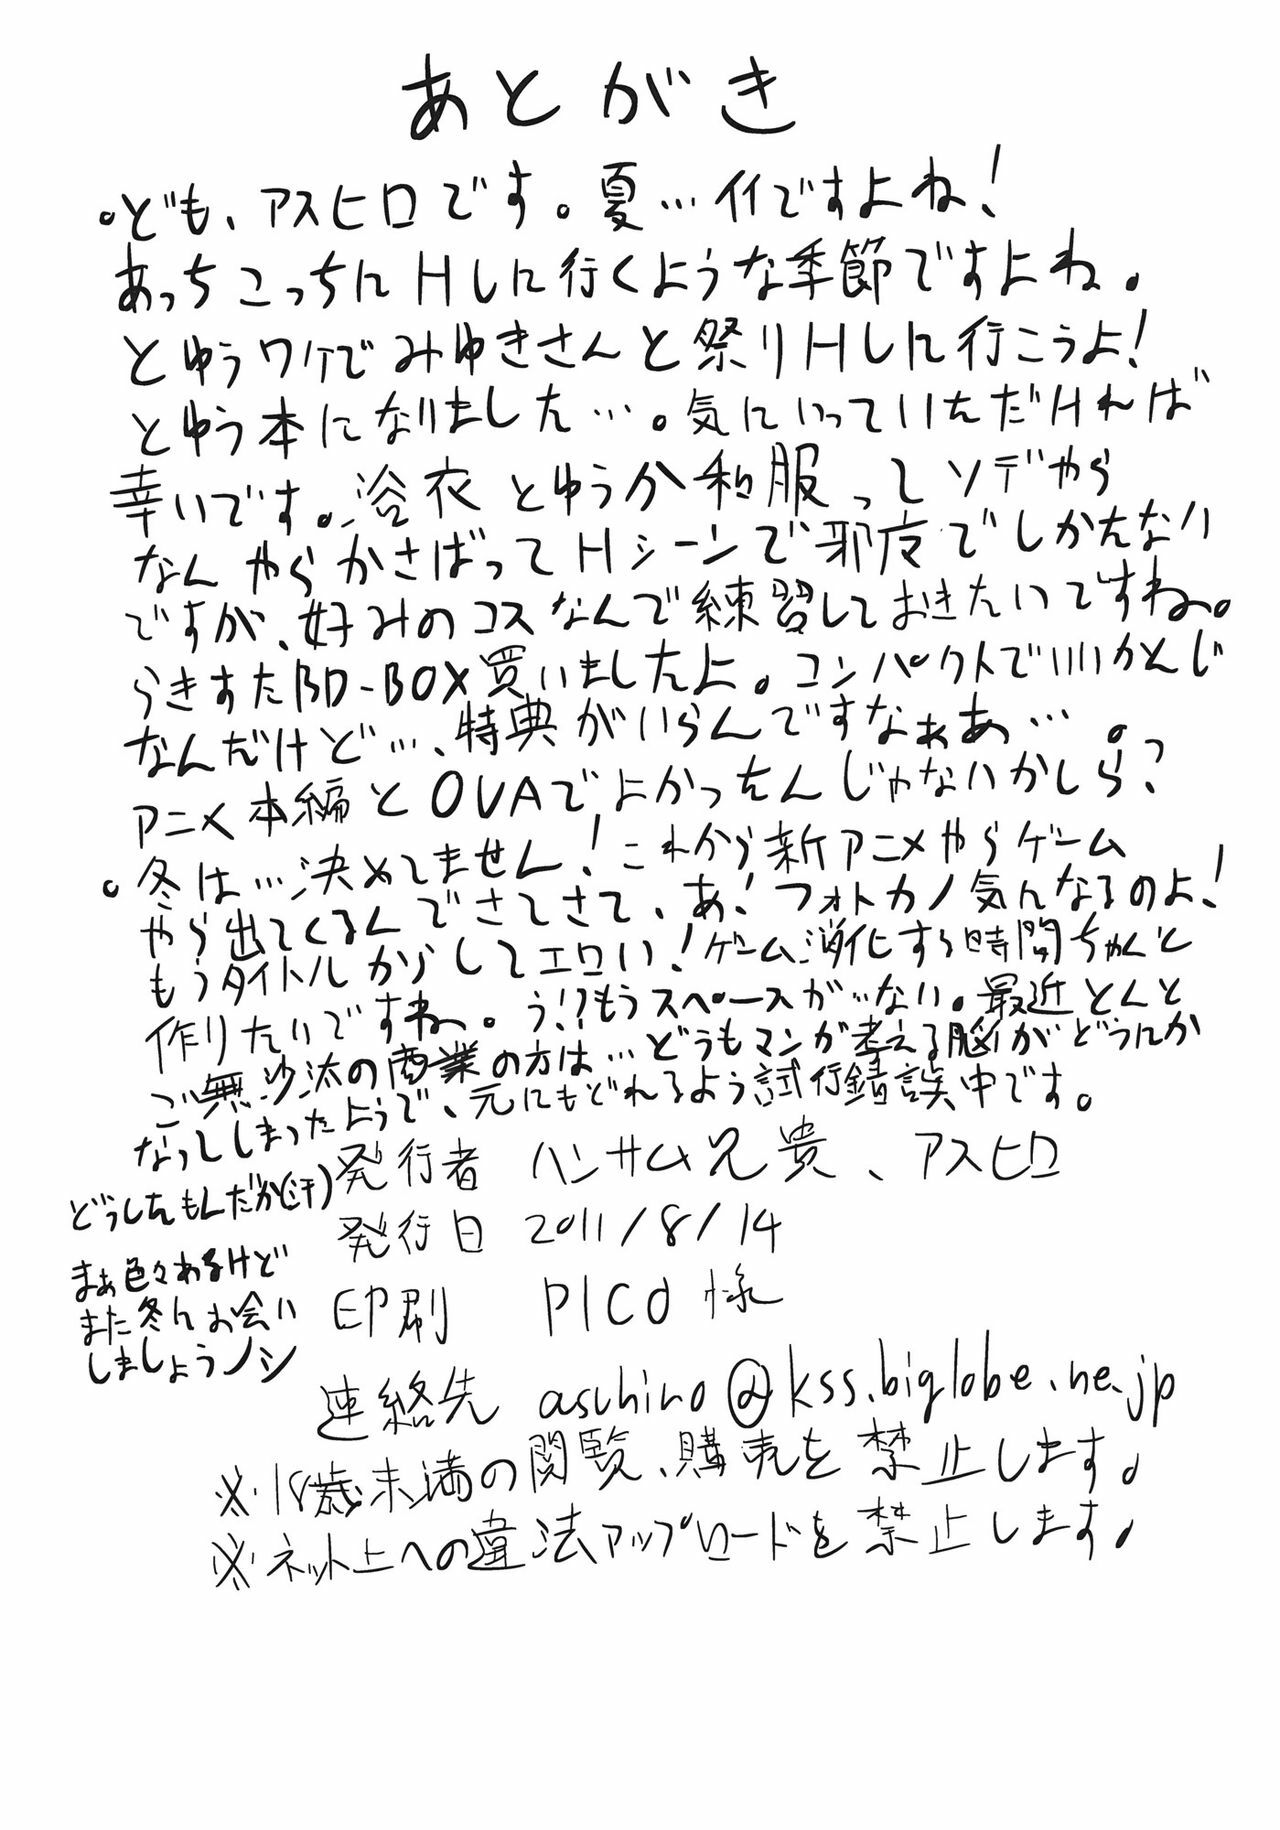 あとがき
。ども、アスヒロです。夏…イイですよね!
あっちこっちにHしに行くような季節ですよね。
とゆうワケでみゆきさんと祭りHしに行こうよ!
とゆう本になりました…。気にいっていただければ
幸いです。浴衣とゆうか和服ってソデやら
なんやらかさばってHシーンで邪魔でしかたない
ですが、好みのコスなんで練習しておきたいですね。
らきすたBD-BOX買いましたよ。コンパクトでいいかんじ
なんだけど…、特典がいらんですなぁあ…。
アニメ本編とOVAでよかったんじゃないかしら?
。冬は…決めてません!これから新アニメやらゲーム
やら出てくるんでさてさて、あ!フォトカノ気になるのよ!
もうタイトルからしてエロい!ゲーム消化する時間ちゃんと
作りたいですね。う!?もうスペースがない。最近とんと
ご無沙汰の商業の方は…どうもマンガ考える脳がどうにか
なってしまったようで、元にもどれるよう試行錯誤中です。
どうしたもんだか(汗)
まぁ色々あるけど
また冬にお会い
しましょうノシ
発行者 ハンサム兄貴、アスヒロ
発行日 2011/8/14
印刷 PICO様
連絡先 asuhiro@kss.biglobe.ne.jp
※18歳未満の閲覧、購売を禁止します。
※ネット上への違法アップロードを禁止します。